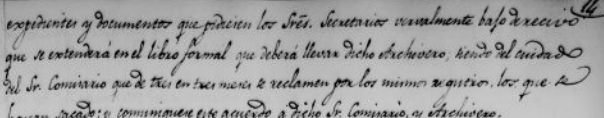 14
expedientes y documentos que pidieien los Srēs. Secretarios vervalmente bajo de recivo
que se extenderá en el libro formal que deberá llevar dicho Archivero, siendo del cuidado
del Sr. Comisario que de tres en tres meses se reclamen por los mismos los que se
hayan sacado: y comuniquese este acuerdo a dicho Sr. Comisario, y Archivero.